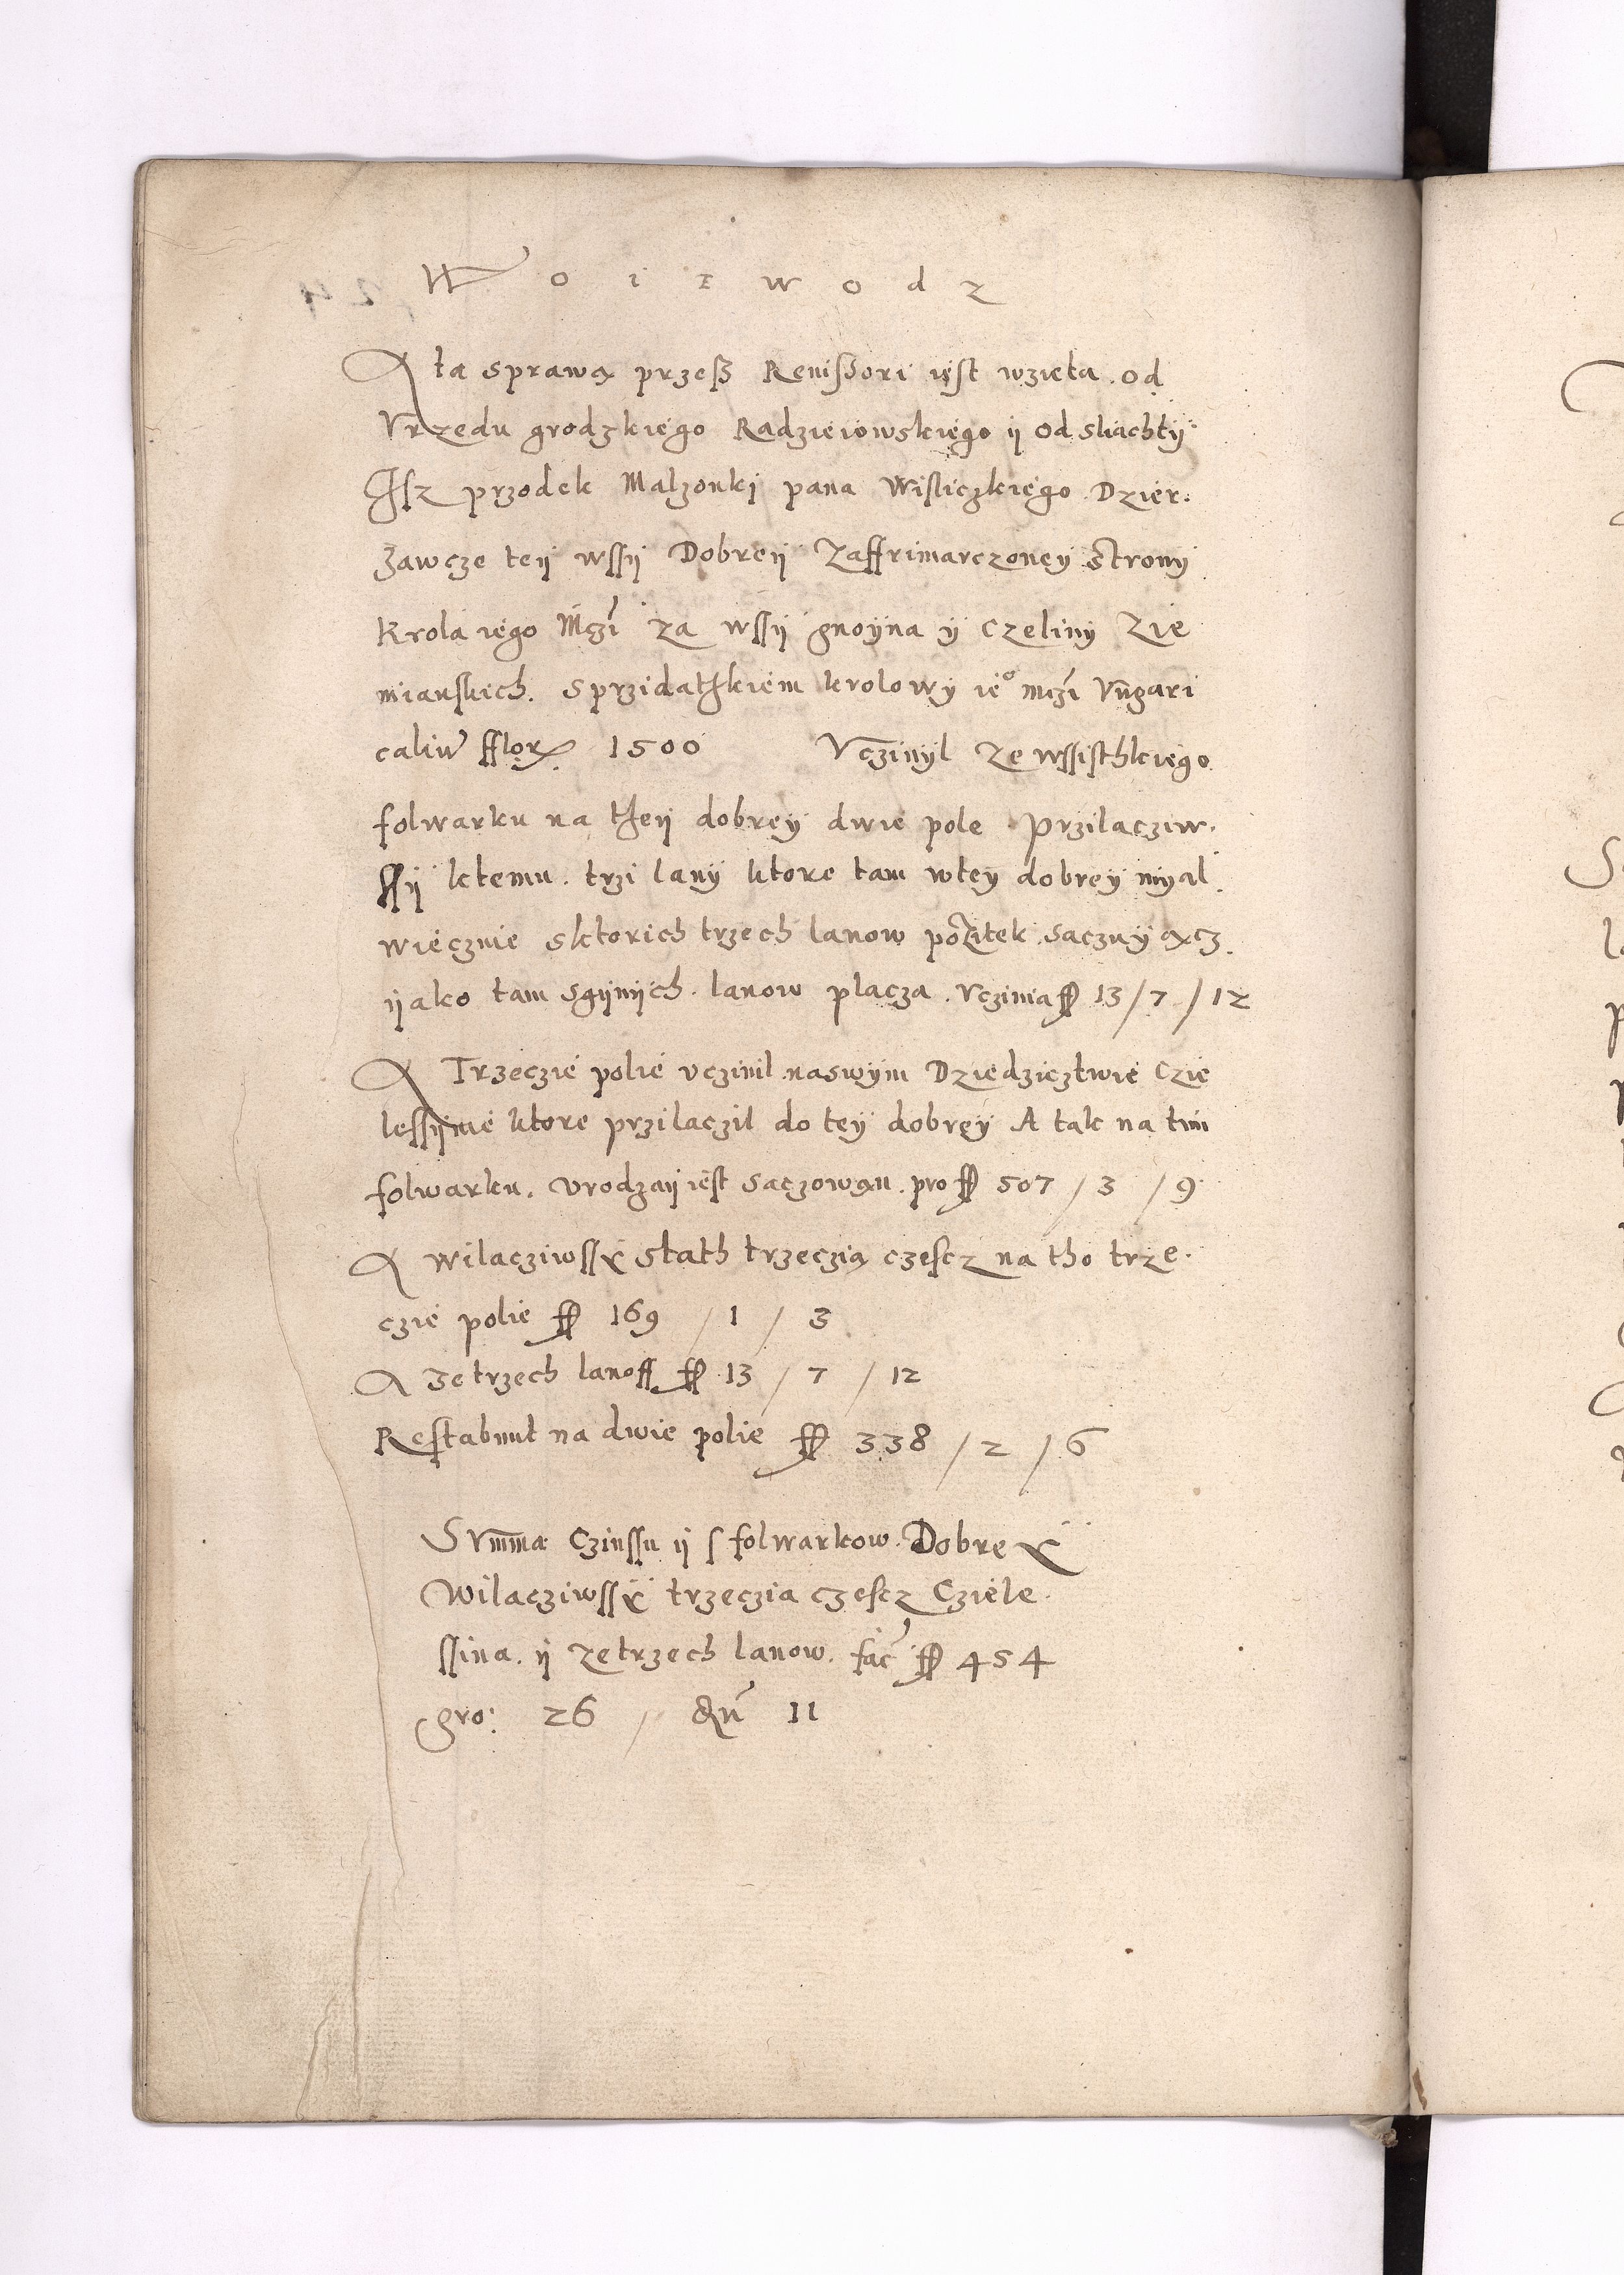 W o i e w o d z
A ta sprawa przesz Revissori iest wzieta. od
Vrzedu grodzkiego Radzieiowskiego ij od sliachtij
Isz przodek Malzonki pana Wisliczkiego Dzier.
zawcze teij wssij Dobreij Zaffrimarczoney Strony
Krola iego Mczi za wssij gnoyna ÿ Czeliny Zie
mianskich. sprzidathkiem krolowy ie° mczi Vngari
caliu fflor 1500 Vczinyl ze wssisthkiego
folwarku na theij dobrey dwie pole Przilacziw.
ssij ktemu. trzi lanÿ ktore tam wtey dobrey myal.
wiecznie sktorich trzech lanow pozitek saczuÿacz.
ijako tam sgijnijch. lanow placza. Vczinia ff 13 / 7 / 12
A Trzeczie polie vczinil naswÿm Dziedzicztwie Czie
lessijnie ktore przilaczil do teÿ dobreÿ A tak na tim
folwarku. vrodzaij iest saczowan. pro ff 507 / 3 / 9
A wilacziwssy stath trzeczia czescz na tho trze.
czie polie ff 169 / 1 / 3
A ze trzech lanoff ff 13 / 7 / 12
Restabunt na dwie polie ff 338 / 2 / 6
Summa Czinssu ij s folwarkow. Dobrey
Wilacziwssy trzeczia czescz Cziele.
ssina. ij ze trzech lanow. fac ff 454
gro: 26 / 11